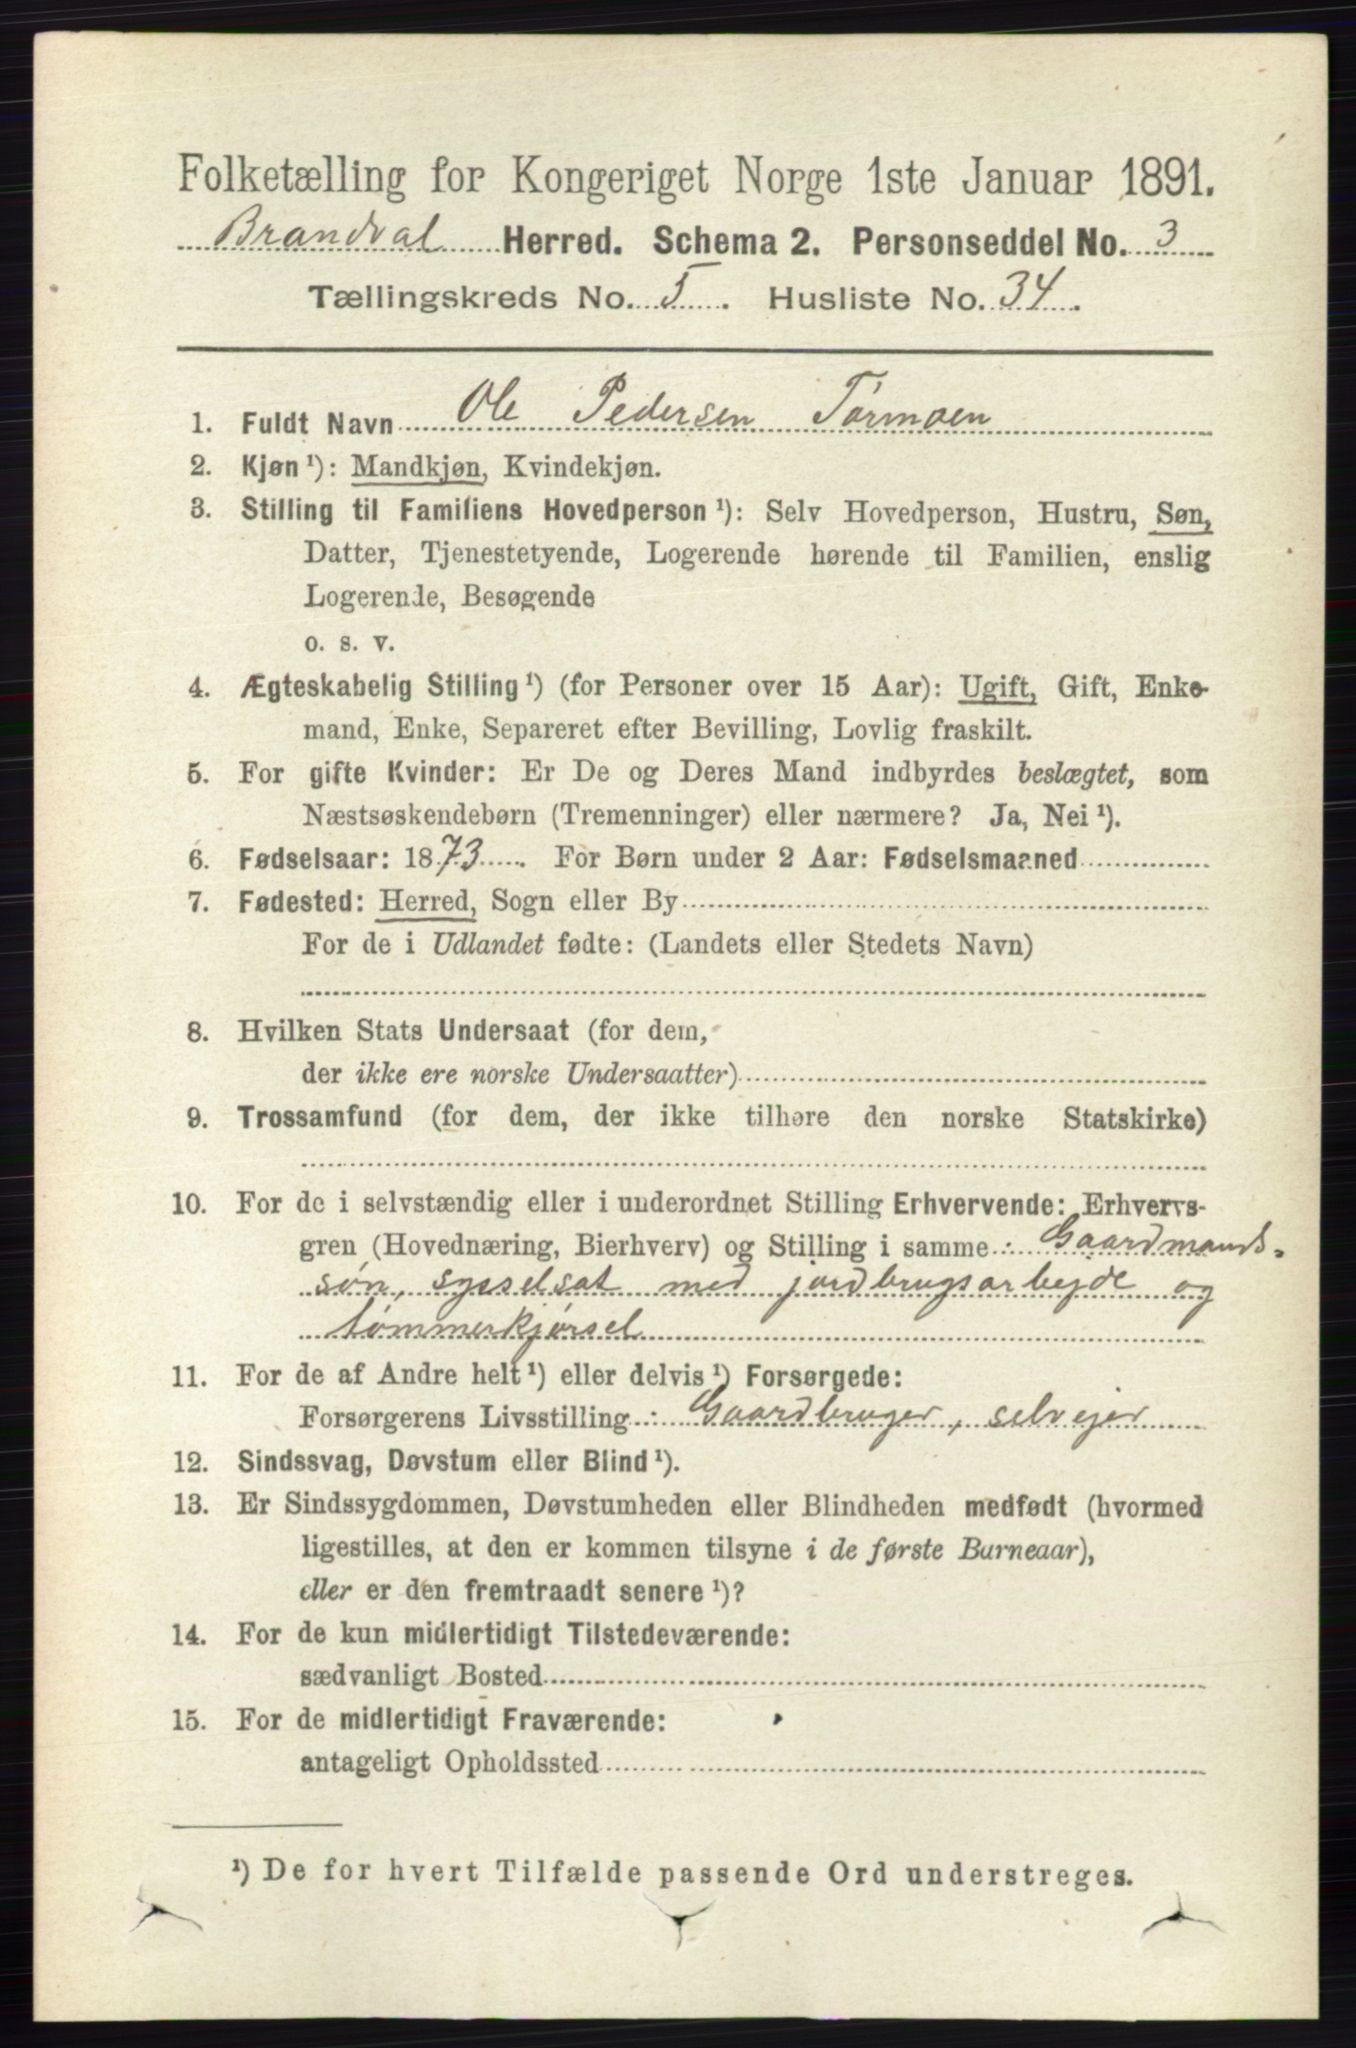 Folketælling for Kongeriget Norge 1ste Januar 1891.
Brandval Herred. Schema 2. Personseddel No. 3
Tællingskreds No. 5. Husliste No. 34.
1. Fuldt Navn Ole Pedersen Tørmoen
2. Kjøn ¹): Mandkjøn, Kvindekjøn.
3. Stilling til Familiens Hovedperson ¹): Selv Hovedperson, Hustru, Søn,
Datter, Tjenestetyende, Logerende hørende til Familien, enslig
Logerende, Besøgende
o. s. v.
4. Ægteskabelig Stilling ¹) (for Personer over 15 Aar): Ugift, Gift, Enke-
mand, Enke, Separeret efter Bevilling, Lovlig fraskilt.
5. For gifte Kvinder: Er De og Deres Mand indbyrdes beslægtet, som
Næstsøskendebørn (Tremenninger) eller nærmere? Ja, Nei ¹).
6. Fødselsaar: 1873. For Børn under 2 Aar: Fødselsmaaned
7. Fødested: Herred, Sogn eller By
For de i Udlandet fødte: (Landets eller Stedets Navn)
8. Hvilken Stats Undersaat (for dem,
der ikke ere norske Undersaatter)
9. Trossamfund (for dem, der ikke tilhøre den norske Statskirke)
10. For de i selvstændig eller i underordnet Stilling Erhvervende: Erhvervs-
gren (Hovednæring, Bierhverv) og Stilling i samme: Gaardmands-
søn, sysselsat med jordbrugsarbejde og
tømmerkjørsel
11. For de af Andre helt ¹) eller delvis ¹) Forsørgede:
Forsørgerens Livsstilling: Gaardbruger, selvejer
12. Sindssvag, Døvstum eller Blind ¹).
13. Er Sindssygdommen, Døvstumheden eller Blindheden medfødt (hvormed
ligestilles, at den er kommen tilsyne i de første Barneaar),
eller er den fremtraadt senere ¹)?
14. For de kun midlertidigt Tilstedeværende:
sædvanligt Bosted
15. For de midlertidigt Fraværende:
antageligt Opholdssted
¹) De for hvert Tilfælde passende Ord understreges.